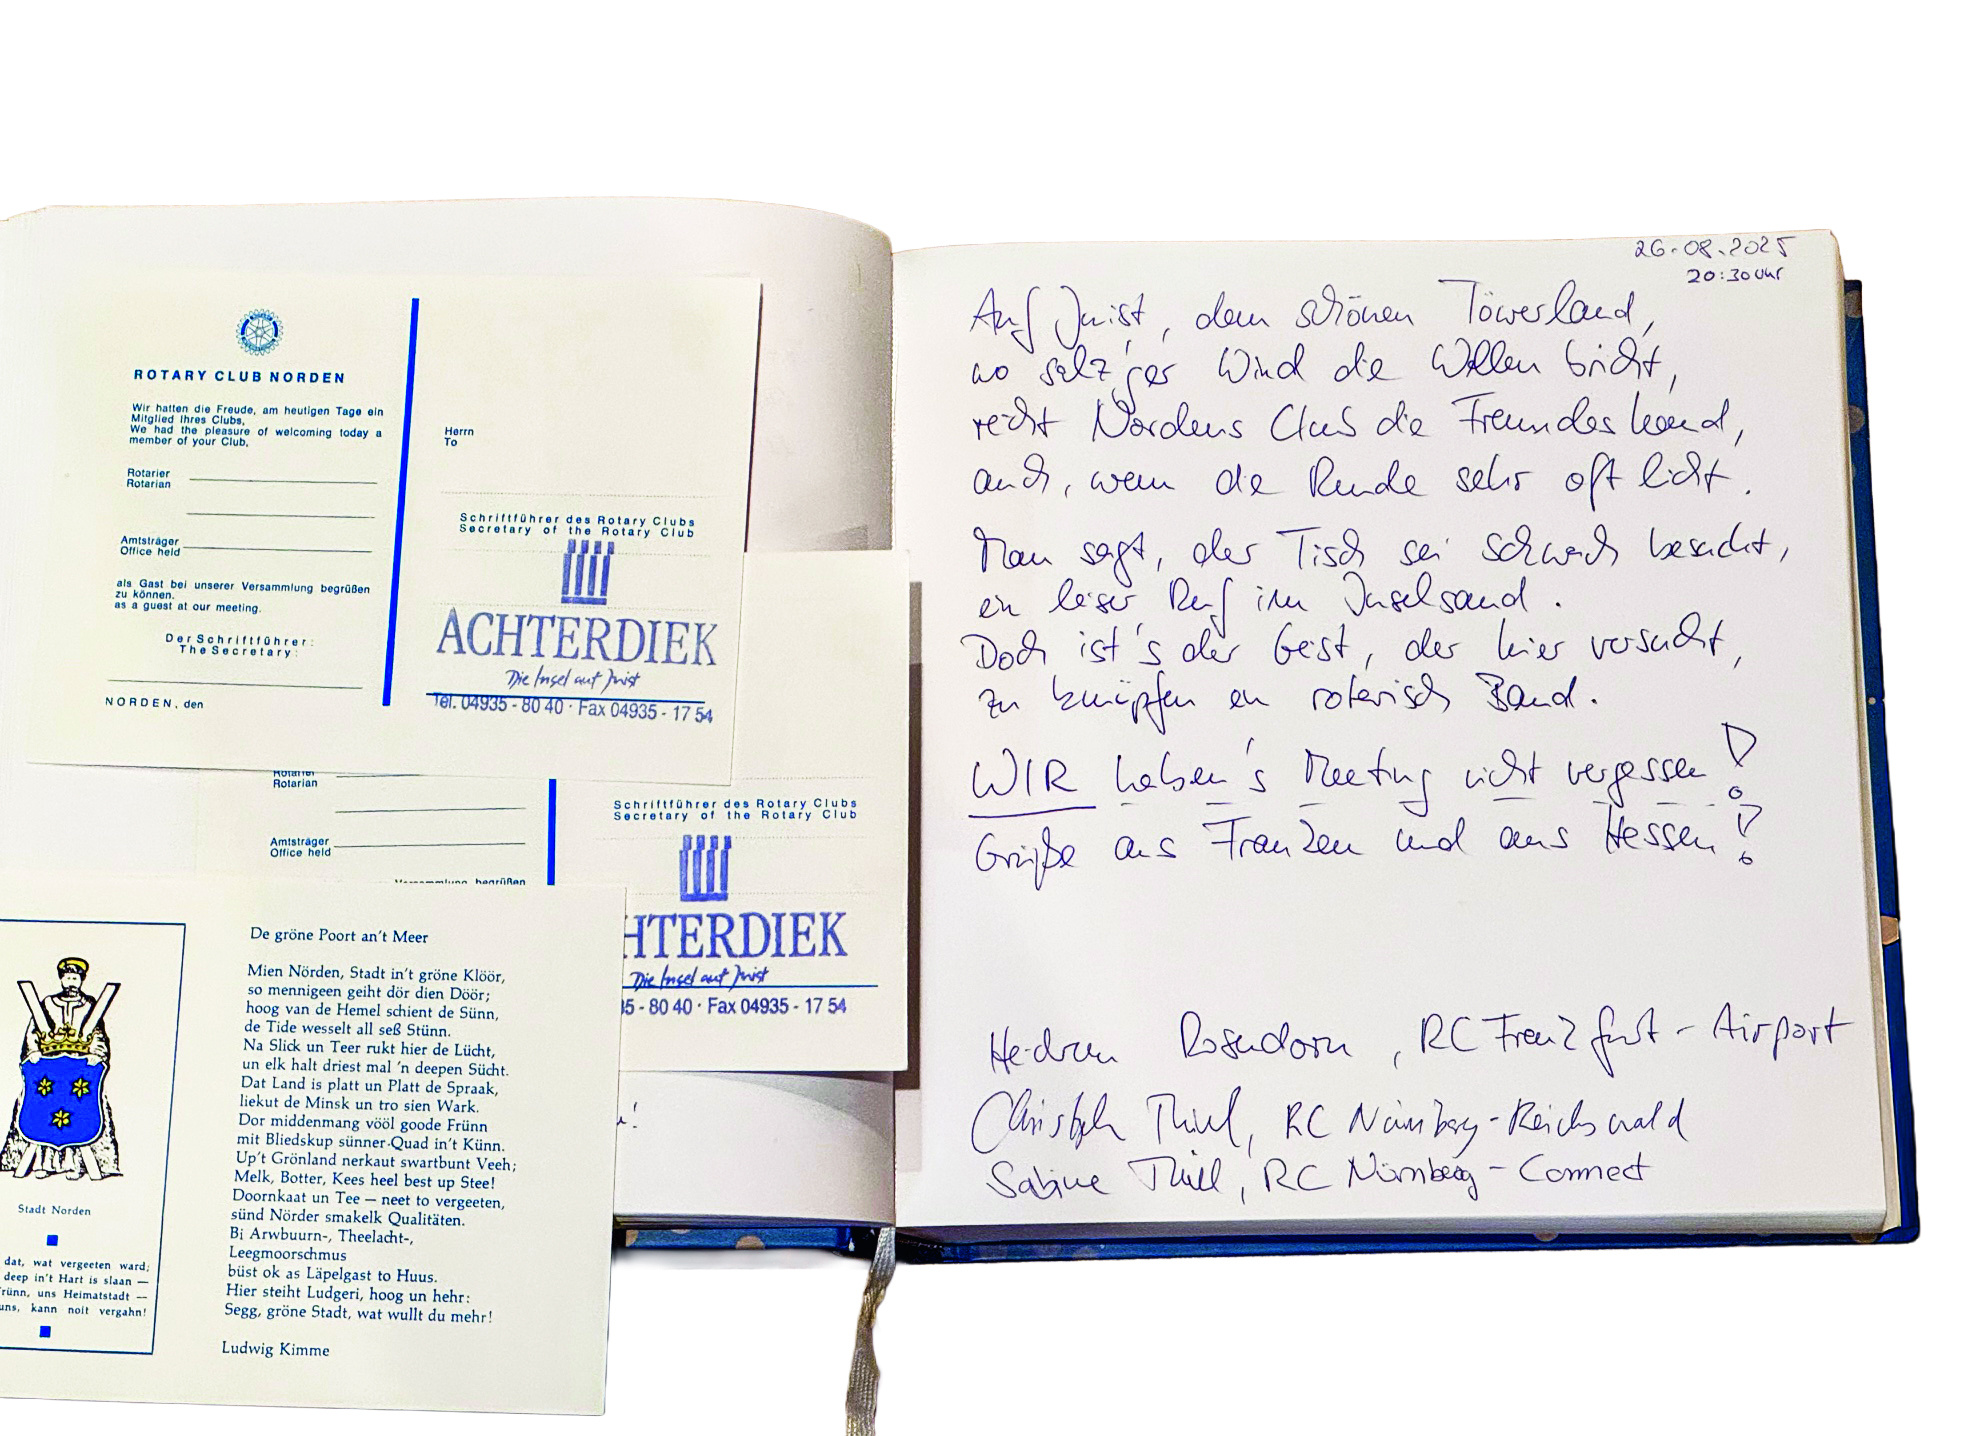 ROTARY CLUB NORDEN
Wir hatten die Freude, am heutigen Tage ein
Mitglied Ihres Clubs,
We had the pleasure of welcoming today a
member of your Club,
Rotarier
Rotarian
Amtsträger
Office held
als Gast bei unserer Versammlung begrüßen
zu können.
as a guest at our meeting.
Der Schriftführer:
The Secretary:
NORDEN, den
Herrn
To
Schriftführer des Rotary Clubs
Secretary of the Rotary Club
ACHTERDIEK
Die Insel auf Juist
Tel. 04935 - 80 40 · Fax 04935 - 17 54
Rotarier
Rotarian
Amtsträger
Office held
Versammlung begrüßen
Schriftführer des Rotary Clubs
Secretary of the Rotary Club
HTERDIEK
Die Insel auf Juist
35 - 80 40 · Fax 04935 - 17 54
Stadt Norden
dat, wat vergeeten ward;
deep in't Hart is slaan —
rünn, uns Heimatstadt —
uns, kann noit vergahn!
De gröne Poort an't Meer
Mien Nörden, Stadt in't gröne Klöör,
so mennigeen geiht dör dien Döör;
hoog van de Hemel schient de Sünn,
de Tide wesselt all seß Stünn.
Na Slick un Teer rukt hier de Lücht,
un elk halt driest mal 'n deepen Sücht.
Dat Land is platt un Platt de Spraak,
liekut de Minsk un tro sien Wark.
Dor middenmang vööl goode Frünn
mit Bliedskup sünner Quad in't Künn.
Up't Grönland nerkaut swartbunt Veeh;
Melk, Botter, Kees heel best up Stee!
Doornkaat un Tee — neet to vergeeten,
sünd Nörder smakelk Qualitäten.
Bi Arwbuurn-, Theelacht-,
Leegmoorschmus
büst ok as Läpelgast to Huus.
Hier steiht Ludgeri, hoog un hehr:
Segg, gröne Stadt, wat wullt du mehr!
Ludwig Kimme
26.08.2025
20:30 Uhr
Auf Juist, dem schönen Töwerland,
wo salz'ger Wind die Wellen bricht,
reicht Nordens Club die Freundeshand,
auch, wenn die Runde sehr oft licht.
Man sagt, der Tisch sei schwach besucht,
ein leiser Ruf im Inselsand.
Doch ist's der Geist, der hier versucht,
zu knüpfen ein rotarisch Band.
WIR haben's Meeting nicht vergessen!
Grüße aus Franken und aus Hessen!
Rosendorn, RC Frankfurt-Airport
Christoph Thiel, RC Nürnberg-Reichswald
Sabine Thiel, RC Nürnberg-Connect